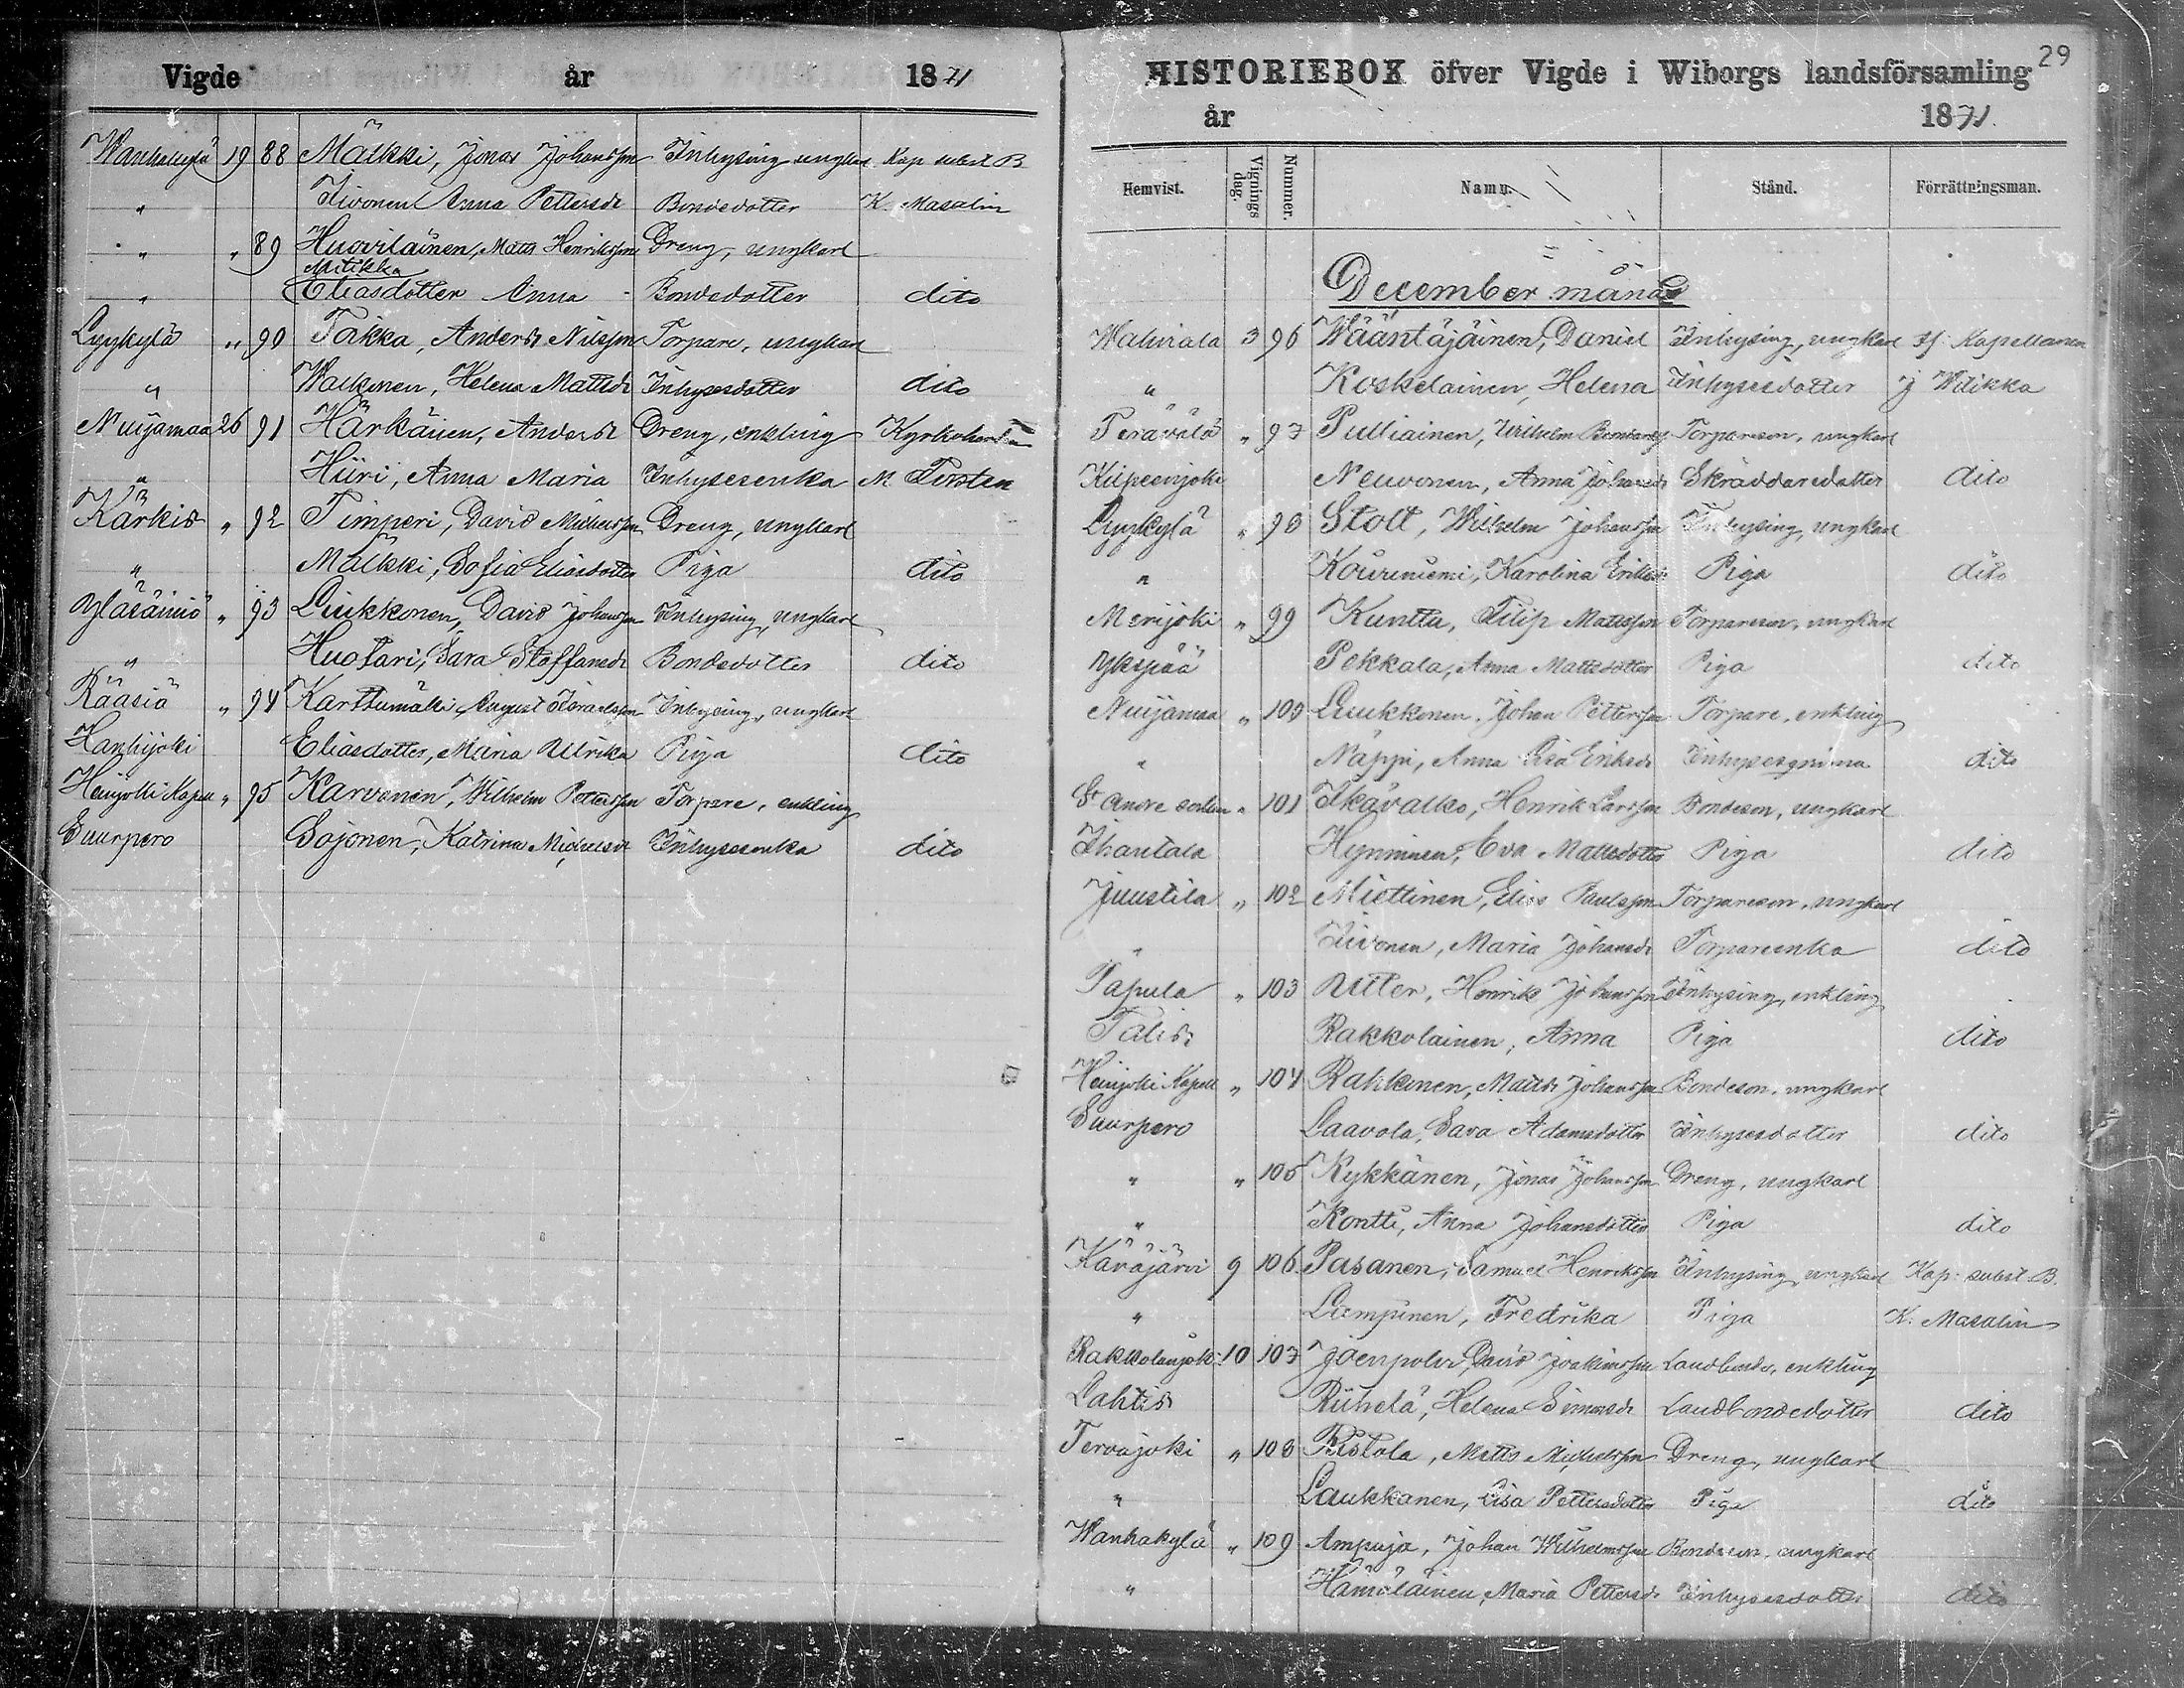 Vigde år 1871
Wanhakylä 19 88 Mälkki, Jonas Johansson Inhysing ungkarl Kap. subst B
" Iivonen Anna Pettersdr Bondedotter K. Masalin
" " 89 Huovilainen, Matts Henriksson Dreng, ungkarl
Mitikka
" Eliasdotter Anna Bondedotter dito
Lyykylä " 90 Takka, Anders Nilsson Torpare, ungkarl
" Walkonen, Helena Mattsdr Inhysesdotter dito
Nuijamaa 26 91 Härkänen, Anders Dreng, enkling Kyrkoherden
" Hiiri, Anna Maria Inhysesenka M Forstén
Kärkis " 92 Timperi, David Michelsson Dreng, ungkarl
" Mälkki, Sofia Eliasdotter Piga dito
Yläsäiniö " 93 Liukkonen, David Johansson Inhysing, ungkarl
" Huotari, Sara Staffansdr Bondedotter dito
Rääsiä " 94 Karttumäki, August Israelsson Inhysing, ungkarl
Hanhijoki Eliasdotter, Maria Ulrika Piga dito
Heinjoki Kapell " 95 Karvonen, Wilhelm Pettersson Torpare, enkling
Suurpero Sojonen, Katrina Michelsdr Inhysesenka dito
29
HISTORIEBOK öfver Vigde i Wiborgs landsförsamling
år 1871.
Hemvist. Vignings dag. Nummer. Namn. Stånd. Förrättningsman.
December månad
Wahviala 3 96 Wääntäjäinen, Daniel Inhysing, ungkarl tf. Kapellanen
" Koskelainen, Helena Inhysesdotter J Wilikka
Perävälä " 97 Pulliainen, Wilhelm Torpareson, ungkarl
Kilpeenjoki Neuvonen, Anna Johansdr Skräddaredotter dito
Lyykylä " 98 Stolt, Wilhelm Johansson Inhysing, ungkarl
" Kouruniemi, Karolina Eriksdr Piga dito
Merijoki " 99 Kuntta, Filip Mattsson Torpareson, ungkarl
Ykspää Pekkala, Anna Mattsdotter Piga dito
Nuijamaa " 100 Luukkonen, Johan Pettersson Torpare, enkling
" Näppi, Anna Lisa Eriksdr Inhysesqvinna dito
St Andre socken " 101 Ikävalko, Henrik Larsson Bondeson, ungkarl
Ihantala Hynninen, Eva Mattsdotter Piga dito
Juustila " 102 Miettinen, Elias Paulsson Torpareson, ungkarl
" Iivonen, Maria Johansdr Torpareenka dito
Papula " 103 Uller, Henrik Johansson Inhysing, enkling
Talis Rakkolainen, Anna Piga dito
Heinjoki Kapell " 104 Rahkonen, Matts Johansson Bondeson, ungkarl
Suurpero Laavola, Sara Adamsdotter Inhysesdotter dito
" " 105 Kykkänen, Jonas Johansson Dreng, ungkarl
" Kontti, Anna Johansdotter Piga dito
Käräjärvi 9 106 Pasanen, Samuel Henriksson Inhysing, ungkarl Kap. subst B.
" Lampinen, Fredrika Piga K. Masalin
Rakkolanjoki 10 107 Joenpolvi, David Joakimsson Landbonde, enkling
Lahtis Riihelä, Helena Simonsdr Landbondedotter dito
Tervajoki " 108 Ristola, Matts Michelsson Dreng, ungkarl
" Laukkanen, Lisa Pettersdotter Piga dito
Wanhakylä " 109 Ampuja, Johan Wilhelmsson Bondeson, ungkarl
" Hämäläinen, Maria Pettersdr Inhysesdotter dito